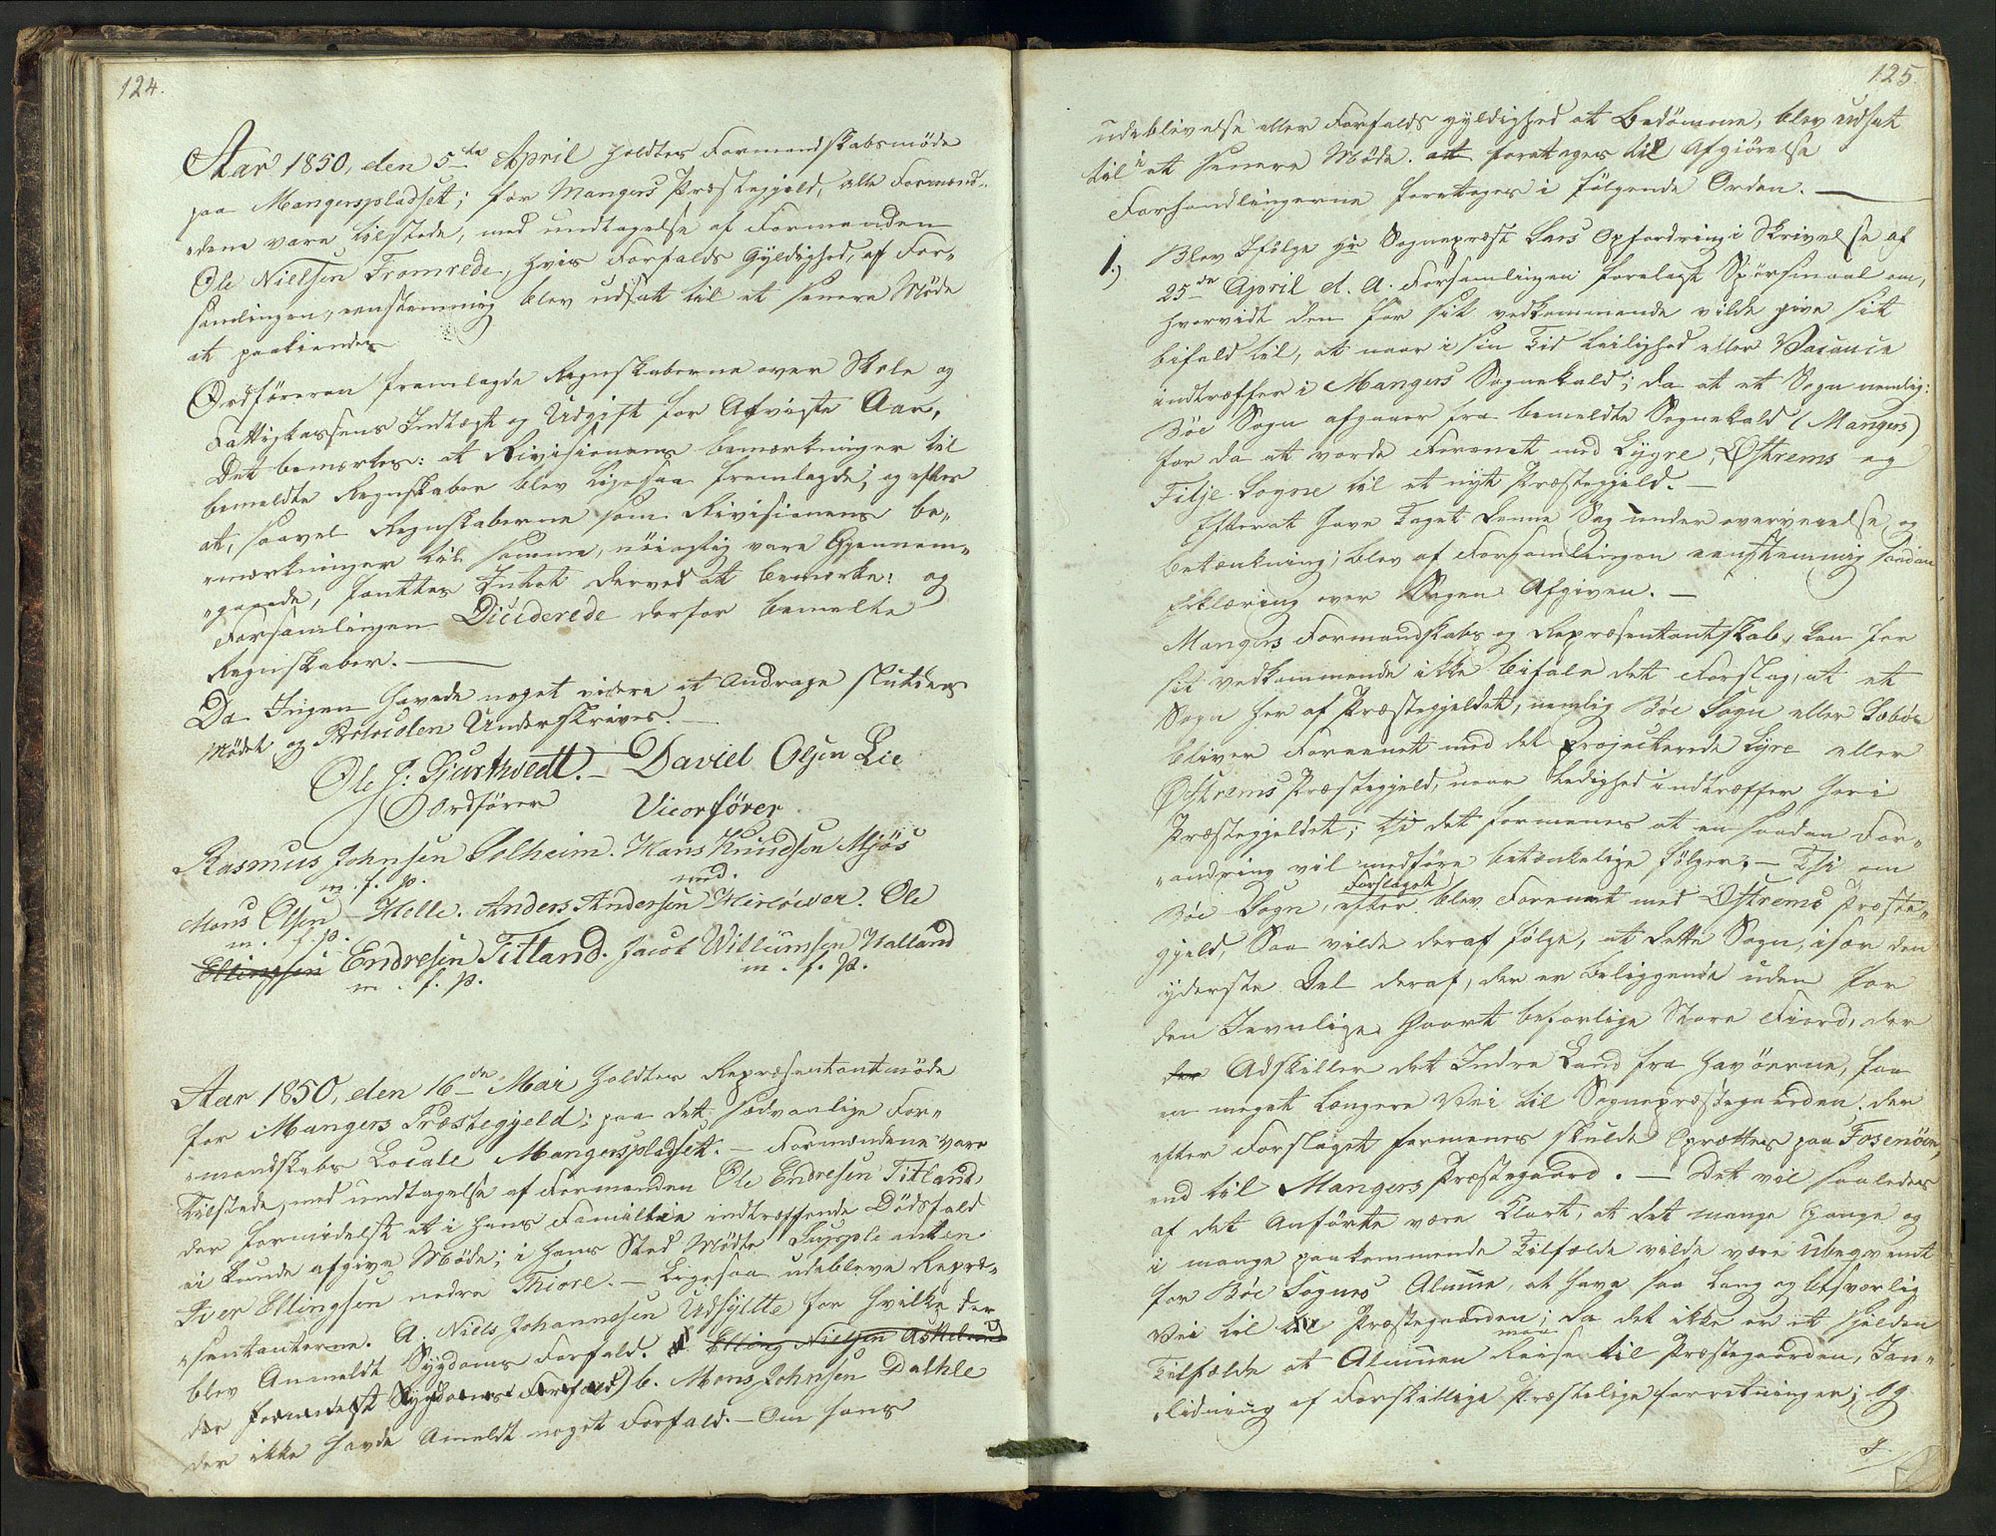 124.
Aar 1850, den 5te April holdtes Formandskabsmöde
paa Mangerspladset; for Mangers Præstegjeld, alle Formænd-
„dene vare tilstede, med undtagelse af Formanden
Ole Nielsen Fromrede, hvis Forfalds Gyldighed, af For-
samlingen, eenstemmig blev udsat til et senere Møde
at paakiendes
Ordföreren fremlagde Regnskaberne over Skole og
Fattigkassens Indtægt og Udgift for Afvigte Aar,
Det bemærkes: at Rivisionens bemærkninger til
bemeldte Regnskaber blev ligesaa fremlagde; og efter
at, saavel Regnskaberne som Rivisionens be-
„mærkninger til samme, nöiagtig vare Gjennem-
„gaaede, fanttes Intet derved at bemærke: og
Forsamlingen Diciderede derfor bemelte
Regnskaber. —
Da Ingen havde noget videre at Andrage sluttedes
Mødet og Protocolen Underskrives. —
Ole J: Gjerthvedt. — David Olsen Lie
Ordförer Viceorförer
Rasmus Johnsen Solheim. Hans Knudsen Mjös
m. f. p. med.
Mons Olsen Helle. Anders Andersen Kirköwer. Ole
m. f. p.
Ellingsen Endresen Titland. Jacob Willumsen Halland
m. f. p. m. f. p.
Aar 1850, den 16de Mai, holdtes Repræsentantmöde
for Mangers Præstegjeld; paa det sædvanlige For-
„mandskabs Locale Mangerspladset. — Formændene vare
tilstede, med undtagelse af Formanden Ole Endresen Titland,
der formedelst et i hans Familie indtræffende Dödsfald
ei kunde afgive Møde; i hans Sted Mødte Suppleanten
Iver Ellingsen nedre Thiore. — Ligesaa udebleve Repræ-
„sentanterne. A. Niels Johannesen Udsyltte for hvilke der
blev Anmeldt Sygdoms Forfald. Elling Nielsen Askeland
der formedelst Sygdoms Forfald) b. Mons Johnsen Dalhle
der ikke havde Ameldt noget Forfald. — Om hans
125.
udeblivelse eller Forfalds gyldighed at bedömme, blev udsat
til at senere Møde. at foretages til Afgiörelse
Forhandlingerne foretoges i følgende Orden. —
1.) Blev Ifølge Hr Sognepræst Lars Opfordring i Skrivelse af
25de April d. A. Forsamlingen forelagt Spörsmaal om,
hvorvidt den for sit vedkommende vilde give sit
bifald til, at naar i sin Tid Leilighed eller Vacance
indtræffer i Mangers Sognekald; da at et Sogn nemlig:
Böe Sogn afgaaer fra bemeldte Sognekald (Mangers)
for da at vorde Forenet med Lygre, Østrems og
Fitje Sogne til et nyt Præstegjeld. —
Efterat have Taget denne Sag under overveielse og
betænkning; blev af Forsamlingen eenstemmig saadan
Erklæring over Sagen Afgiven. —
Mangers Formandskabs og Repræsentantskab, kan for
sit vedkommende ikke bifale det Forslag, at et
Sogn her af Præstegjeldet, nemlig Böe Sogn eller Sæböe
bliver Foreenet med det projecterede Lyre eller
Østrems Præstegjeld, naar Ledighed indtræffer her i
Præstegjeldet; thi det formenes at en saadan For-
„andring vil medföre betænkelige følger; — Thi om
Böe Sogn, efter Forslaget blev Forenet med Østrems Præste-
gjeld, Saa vilde deraf følge, at dette Sogn, især den
yderste Del deraf, der er beliggende uden for
den Jevnlige haart befarlige Store Fiord, der
der Adskiller det Indre Land fra Havöerne, faa
en meget længere Vei til Sognepræstegaarden, der
efter Forslaget formenes skulde Oprættes paa Fosenöen,
end til Mangers Præstegaard. — Det vil saaledes
af det Anförte være klart, at det mange Gange og
i mange paakommende Tilfælde vilde være Ubeqvemt
for Böe Sognes Almue, at have saa lang og besværlig
Vei til Præstegaarden; da det ikke er et sjelden
Tilfælde at Almuen maa Reise til Præstegaarden, I an-
„ledning af Forskillige Præstelige forretninger; Og